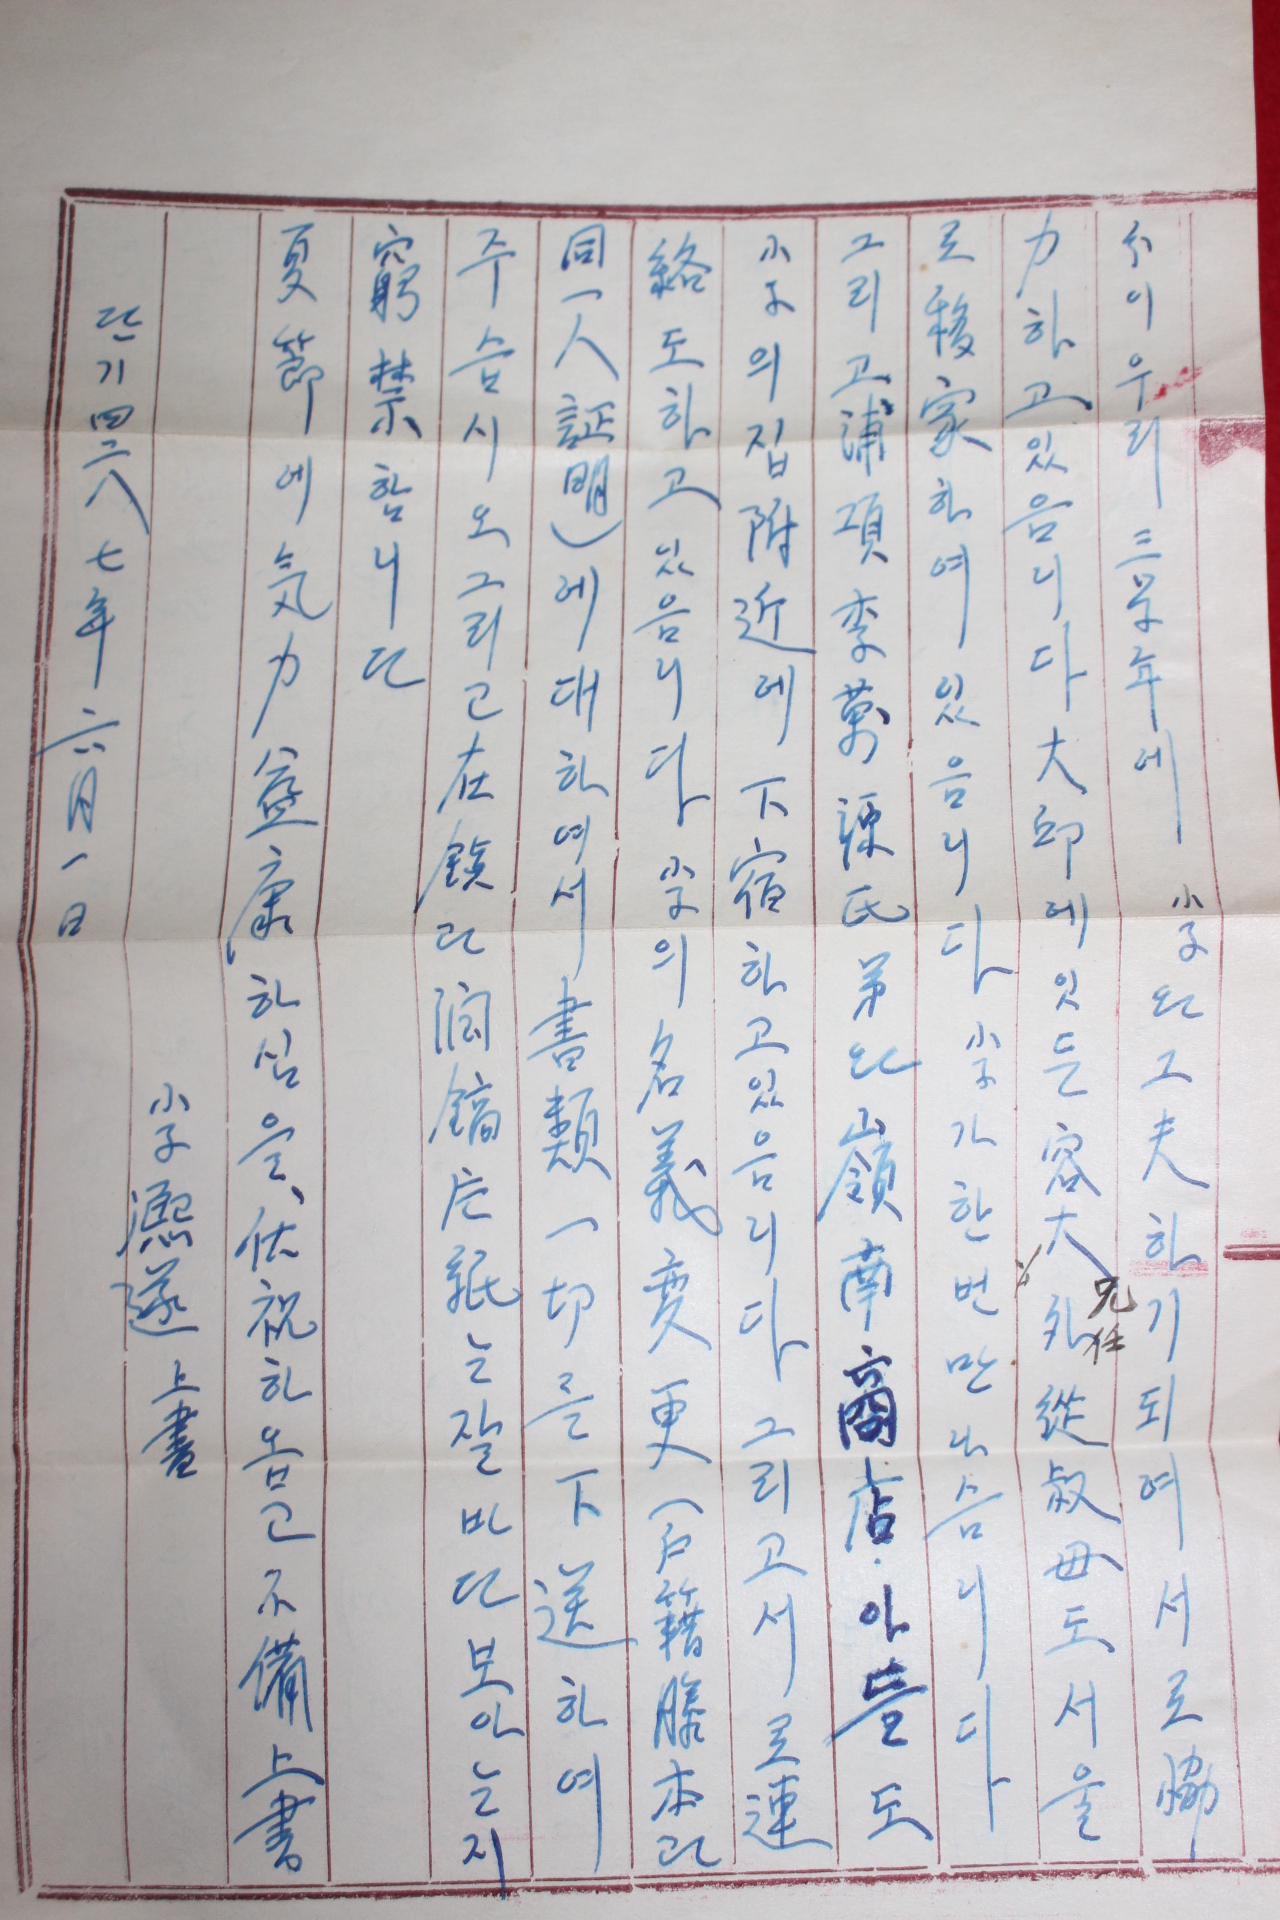 이 우리 三学年에 小子와 그夫하기되여서로協
力하고있음니다 大邱에있든 容大 兄任 外從叔母도서울
로 移家하여 있음니다 小子가한번만났슴니다
그리고浦項李萬源氏弟와 嶺南商店 아들도
小子의집附近에 下宿하고있음니다 그리고서로連
絡도하고 있음니다 小子의名義変更(戶籍謄本과
同一人証明)에대하여서 書類一切를下送하여
주슴시오 그리고 在鎭과 潤鎬 은 는잘받다보아는지
窮禁함니다
夏節에 気力益康하심을、伏祝하옴고 不備上書
小子 熙遂 上書
단기四二八七年 六月 一日